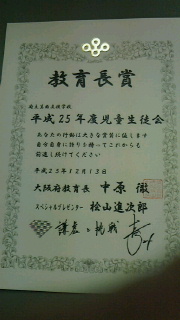 教育長賞
平成25年度児童生徒会
あなたの行動は大きな賞賛に値します
自分自身に誇りを持ってこれからも
前進し続けてください
平成25年12月13日
大阪府教育長 中原 徹
スペシャルプレゼンター 松山進次郎
謙虚と挑戦